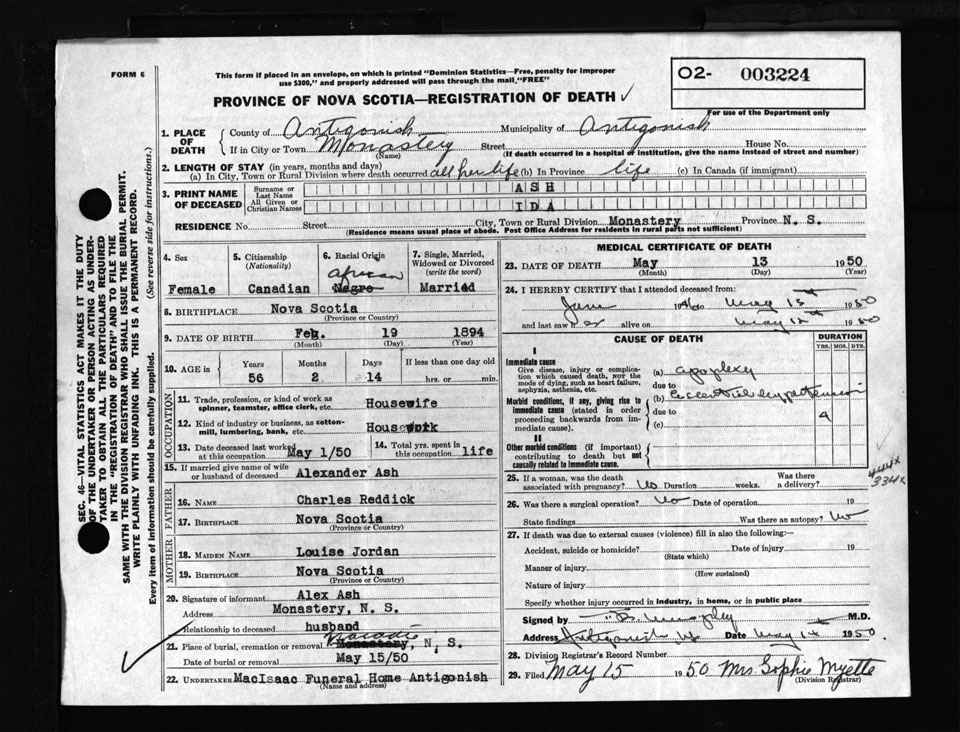 FORM 6
This form if placed in an envelope, on which is printed "Dominion Statistics—Free, penalty for improper
use $300," and properly addressed will pass through the mail "FREE"
02- 003224
For use of the Department only
PROVINCE OF NOVA SCOTIA—REGISTRATION OF DEATH ✓
1. PLACE OF DEATH { County of Antigonish Municipality of Antigonish
If in City or Town Monastery Street House No.
(Name) (If death occurred in a hospital or institution, give the name instead of street and number)
2. LENGTH OF STAY (in years, months and days)
(a) In City, Town or Rural Division where death occurred all her life (b) In Province life (c) In Canada (if immigrant)
3. PRINT NAME OF DECEASED { Surname or Last Name ASH
All Given or Christian Names IDA
RESIDENCE No. Street City, Town or Rural Division Monastery Province N. S.
(Residence means usual place of abode. Post Office Address for residents in rural parts not sufficient)
4. Sex Female
5. Citizenship (Nationality) Canadian
6. Racial Origin African Negro
7. Single, Married, Widowed or Divorced (write the word) Married
8. BIRTHPLACE Nova Scotia
(Province or Country)
9. DATE OF BIRTH Feb. 19 1894
(Month) (Day) (Year)
10. AGE in Years Months Days If less than one day old
56 2 14 hrs. or min.
OCCUPATION
11. Trade, profession, or kind of work as spinner, teamster, office clerk, etc. Housewife
12. Kind of industry or business, as cotton-mill, lumbering, bank, etc. Housework
13. Date deceased last worked at this occupation May 1/50
14. Total yrs. spent in this occupation life
15. If married give name of wife or husband of deceased Alexander Ash
FATHER
16. NAME Charles Reddick
17. BIRTHPLACE Nova Scotia
(Province or Country)
MOTHER
18. MAIDEN NAME Louise Jordan
19. BIRTHPLACE Nova Scotia
(Province or Country)
20. Signature of informant Alex Ash
Address Monastery, N. S.
Relationship to deceased husband
21. Place of burial, cremation or removal Monastery, N. S.
Date of burial or removal May 15/50
22. UNDERTAKER MacIsaac Funeral Home Antigonish
(Name and address)
MEDICAL CERTIFICATE OF DEATH
23. DATE OF DEATH May 13 1950
(Month) (Day) (Year)
24. I HEREBY CERTIFY that I attended deceased from:
June 1946 to May 13 1950
and last saw her alive on May 12 1950
CAUSE OF DEATH
DURATION
YRS. MOS. DYS.
I
Immediate cause
Give disease, injury or complication which caused death, NOT the mode of dying, such as heart failure, asphyxia, asthenia, etc.
(a) apoplexy
due to
Morbid conditions, if any, giving rise to immediate cause (stated in order proceeding backwards from immediate cause).
(b) essential hypertension
due to
(c)
II
Other morbid conditions (if important) contributing to death but not causally related to immediate cause.
444x
334x
25. If a woman, was the death associated with pregnancy? No Duration weeks. Was there a delivery?
26. Was there a surgical operation? No Date of operation 19
State findings Was there an autopsy? No
27. If death was due to external causes (violence) fill in also the following:—
Accident, suicide or homicide? Date of injury 19
(State which)
Manner of injury
(How sustained)
Nature of injury
Specify whether injury occurred in industry, in home, or in public place
Signed by M.D.
Address Antigonish NS Date May 14 1950.
28. Division Registrar's Record Number
29. Filed May 15 1950 Mrs Sophie Myette
(Division Registrar)
SEC. 46—VITAL STATISTICS ACT MAKES IT THE DUTY
OF THE UNDERTAKER OR PERSON ACTING AS UNDER-
TAKER TO OBTAIN ALL THE PARTICULARS REQUIRED
IN THE "REGISTRATION OF DEATH" AND TO FILE THE
SAME WITH THE DIVISION REGISTRAR WHO SHALL ISSUE THE BURIAL PERMIT.
WRITE PLAINLY WITH UNFADING INK. THIS IS A PERMANENT RECORD.
Every item of information should be carefully supplied. (See reverse side for instructions.)